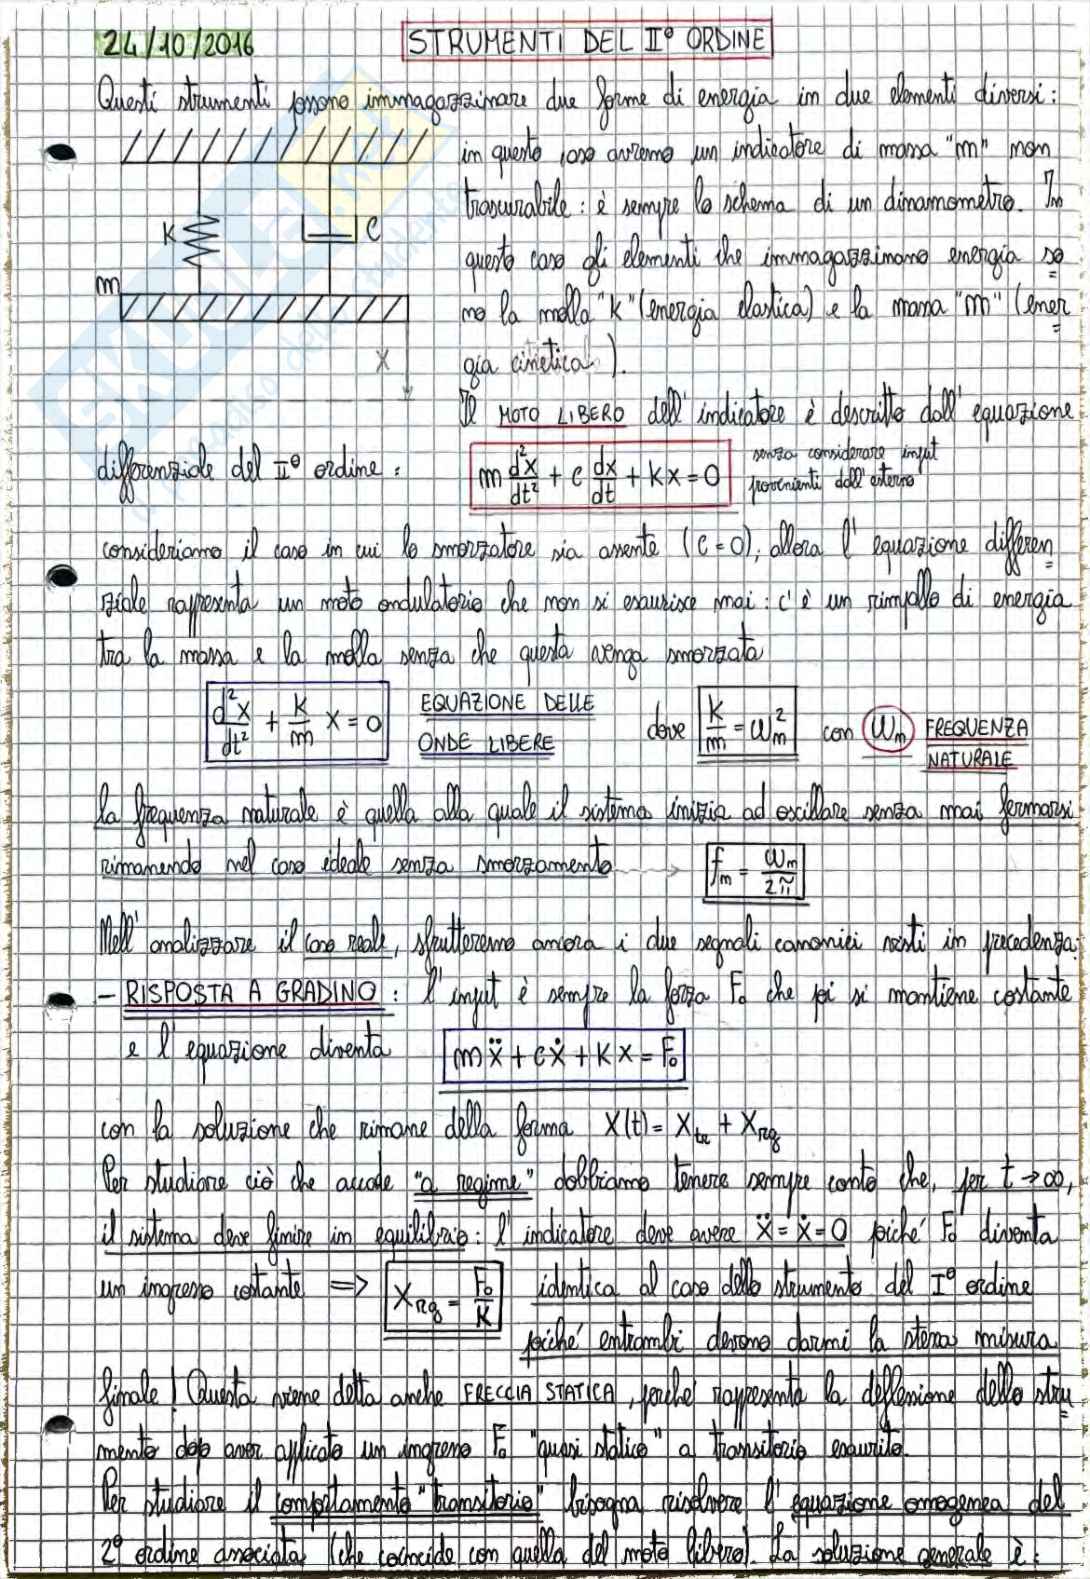 24/10/2016
STRUMENTI DEL IIº ORDINE
Questi strumenti possono immagazzinare due forme di energia in due elementi diversi:
in questo caso avremo un indicatore di massa "m" non
trascurabile: è sempre lo schema di un dinamometro. In
K
C
questo caso gli elementi che immagazzinano energia so
m
no la molla "K" (energia elastica) e la massa "m" (ener
X
gia cinetica).
Il MOTO LIBERO dell'indicatore è descritto dall'equazione
differenziale del IIº ordine:
m d²x/dt² + c dx/dt + Kx = 0
senza considerare input
provenienti dall'esterno
consideriamo il caso in cui lo smorzatore sia assente (C=0), allora l'equazione differen
ziale rappresenta un moto ondulatorio che non si esaurisce mai: c'è un rimpallo di energia
tra la massa e la molla senza che questa venga smorzata
d²x/dt² + k/m x = 0
EQUAZIONE DELLE
ONDE LIBERE
dove k/m = ωₙ² con ωₙ FREQUENZA
NATURALE
la frequenza naturale è quella alla quale il sistema inizia ad oscillare senza mai fermarsi
rimanendo nel caso ideale senza smorzamento → fₙ = ωₙ/2π
Nell'analizzare il caso reale, sfrutteremo ancora i due segnali canonici visti in precedenza:
- RISPOSTA A GRADINO: l'input è sempre la forza F₀ che poi si mantiene costante
e l'equazione diventa mẍ + cẋ + Kx = F₀
con la soluzione che rimane della forma X(t) = X_tr + X_rg
Per studiare ciò che accade "a regime" dobbiamo tenere sempre conto che, per t→∞,
il sistema deve finire in equilibrio: l'indicatore deve avere ẍ = ẋ = 0 poiché F₀ diventa
un ingresso costante => X_rg = F₀/K identica al caso dello strumento del Iº ordine
poiché entrambi devono darmi la stessa misura
finale! Questa viene detta anche FRECCIA STATICA, perché rappresenta la deflessione dello stru
mento dopo aver applicato un ingresso F₀ "quasi statico" a transitorio esaurito.
Per studiare il comportamento "transitorio" bisogna risolvere l'equazione omogenea del
2º ordine associata (che coincide con quella del moto libero). La soluzione generale è:
SKUOLA.net
il paradiso dello studente